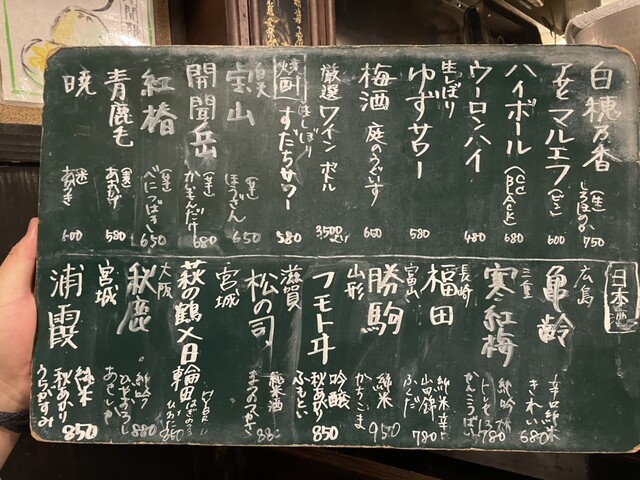 白穂乃香 (生) しろほのか 750
アサヒ マルエフ (ビン) 600
ハイボール (CC BLACK) 680
ウーロンハイ 480
生しぼり
ゆずサワー 580
梅酒 庭のうぐいす 650
厳選ワイン ボトル 3500より
生しぼり
すだちサワー 580
焼酎
宝山 (芋) ほうざん 650
開聞岳 (芋) かいもんだけ 680
紅椿 (芋) べにつばき 650
青鹿毛 (麦) あおかげ 580
暁 600
日本酒
広島
亀齢 辛口純米 きれい 680
三重
寒紅梅 純吟 かんこうばい 780
長崎
福田 純米辛口 山田錦 ふくだ 780
富山
勝駒 純米 かちこま 950
山形
フモトヰ 吟醸 秋あがり ふもとい 850
滋賀
松の司 純米酒 まつのつかさ 880
宮城
萩の鶴×日輪田
大阪
秋鹿 純吟 ひやおろし あきしか 880
宮城
浦霞 純米 秋あがり うらがすみ 850